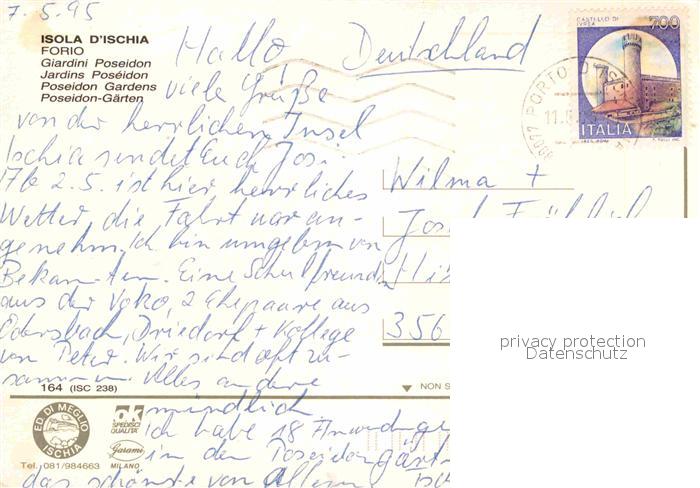 7.5.95
ISOLA D'ISCHIA
FORIO
Giardini Poseidon
Jardins Poséidon
Poseidon Gardens
Poseidon-Gärten
Hallo
Deutschland
viele Grüße
von der herrlichen Insel
Ischia sendet Euch Josi.
Ab 2.5. ist hier herrliches
Wetter, die Fahrt war an-
genehm. Ich bin umgeben von
Bekannten. Eine Schulfreundin
aus der Voko, 2 Ehepaare aus
Edersbach, Driedorf + Kollege
von Peter. Wir sind oft zu-
sammen. Alles andere
mündlich
Ich habe 18 Anwendungen
in den Poseidongärten
das schönste von Allem
CASTELLO DI
IVREA
700
ITALIA
80077 PORTO D'ISCHIA
Wilma +
Josef
356
privacy protection
Datenschutz
164 (ISC 238)
NON S
ED. DI MEGLIO
ISCHIA
ok
SPEDISCI
QUALITA'
Garami
MILANO
Tel. 081/984663